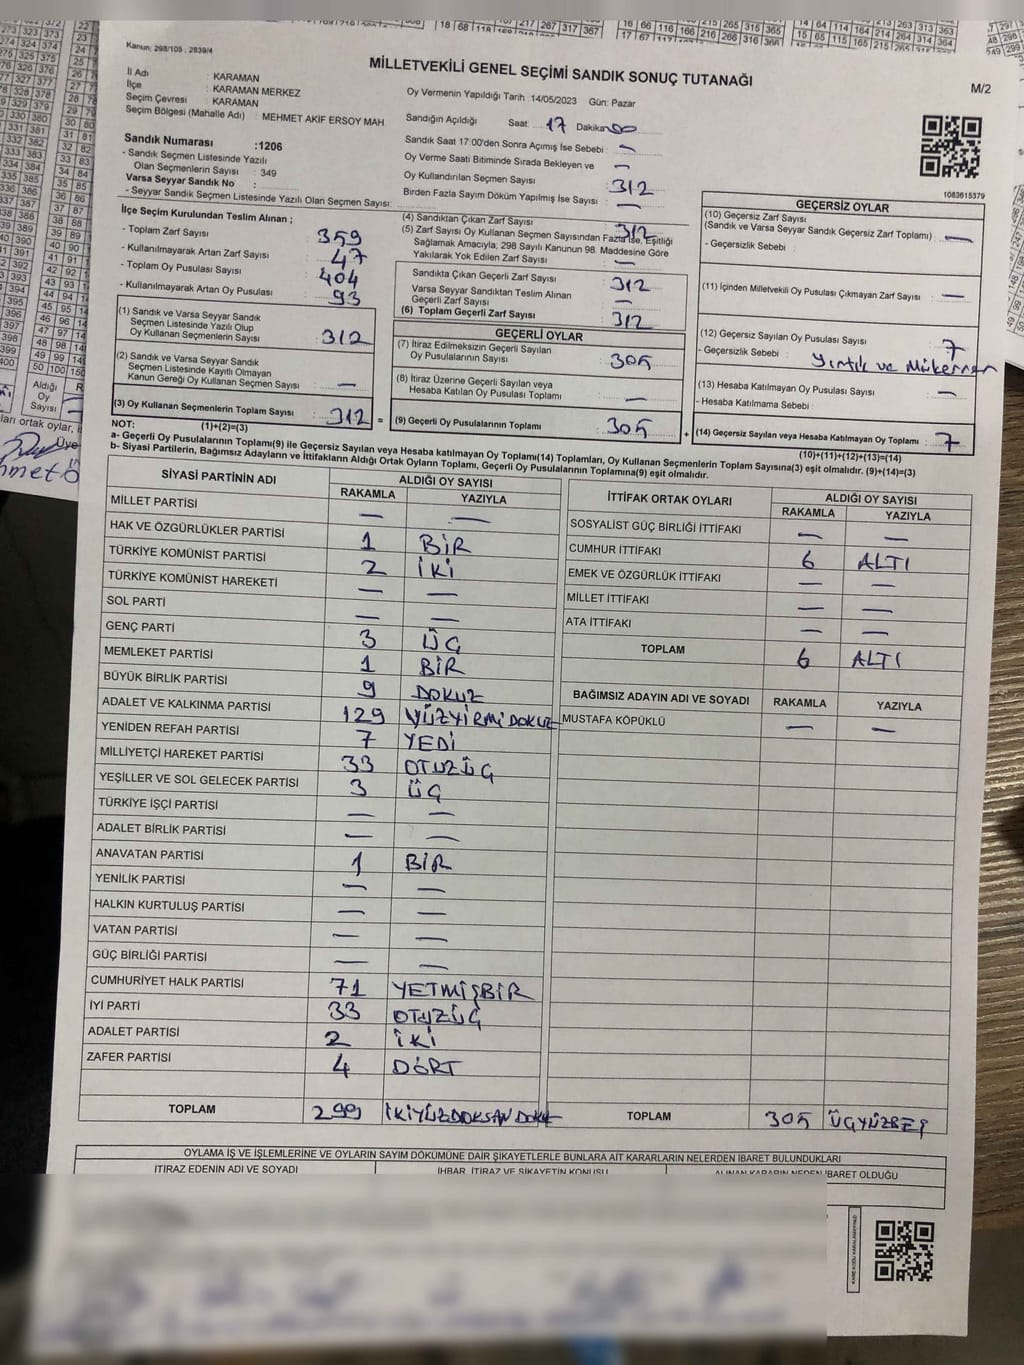 Kanun: 298/105 , 2839/4
MİLLETVEKİLİ GENEL SEÇİMİ SANDIK SONUÇ TUTANAĞI
M/2
İl Adı : KARAMAN
İlçe : KARAMAN MERKEZ
Seçim Çevresi : KARAMAN
Seçim Bölgesi (Mahalle Adı) : MEHMET AKİF ERSOY MAH
Oy Vermenin Yapıldığı Tarih :14/05/2023 Gün: Pazar
Sandığın Açıldığı Saat: 17 Dakika: 00
Sandık Numarası :1206
- Sandık Seçmen Listesinde Yazılı
Olan Seçmenlerin Sayısı : 349
Varsa Seyyar Sandık No :
- Seyyar Sandık Seçmen Listesinde Yazılı Olan Seçmen Sayısı:
Sandık Saat 17:00'den Sonra Açımış İse Sebebi : —
Oy Verme Saati Bitiminde Sırada Bekleyen ve
Oy Kullandırılan Seçmen Sayısı : —
312
Birden Fazla Sayım Döküm Yapılmış İse Sayısı : —
1083615379
İlçe Seçim Kurulundan Teslim Alınan ;
- Toplam Zarf Sayısı : 359
- Kullanılmayarak Artan Zarf Sayısı : 47
- Toplam Oy Pusulası Sayısı : 404
- Kullanılmayarak Artan Oy Pusulası : 93
(1) Sandık ve Varsa Seyyar Sandık
Seçmen Listesinde Yazılı Olup
Oy Kullanan Seçmenlerin Sayısı : 312
(2) Sandık ve Varsa Seyyar Sandık
Seçmen Listesinde Kayıtlı Olmayan
Kanun Gereği Oy Kullanan Seçmen Sayısı : —
(3) Oy Kullanan Seçmenlerin Toplam Sayısı : 312 =
(4) Sandıktan Çıkan Zarf Sayısı : 312
(5) Zarf Sayısı Oy Kullanan Seçmen Sayısından Fazla İse, Eşitliği
Sağlamak Amacıyla; 298 Sayılı Kanunun 98. Maddesine Göre
Yakılarak Yok Edilen Zarf Sayısı : —
Sandıkta Çıkan Geçerli Zarf Sayısı : 312
Varsa Seyyar Sandıktan Teslim Alınan
Geçerli Zarf Sayısı : —
(6) Toplam Geçerli Zarf Sayısı : 312
GEÇERLİ OYLAR
(7) İtiraz Edilmeksizin Geçerli Sayılan
Oy Pusulalarının Sayısı : 305
(8) İtiraz Üzerine Geçerli Sayılan veya
Hesaba Katılan Oy Pusulası Toplamı : —
(9) Geçerli Oy Pusulalarının Toplamı : 305 +
GEÇERSİZ OYLAR
(10) Geçersiz Zarf Sayısı
(Sandık ve Varsa Seyyar Sandık Geçersiz Zarf Toplamı) : —
- Geçersizlik Sebebi :
(11) İçinden Milletvekili Oy Pusulası Çıkmayan Zarf Sayısı : —
(12) Geçersiz Sayılan Oy Pusulası Sayısı : 7
- Geçersizlik Sebebi : Yırtık ve Mükerrer
(13) Hesaba Katılmayan Oy Pusulası Sayısı : —
- Hesaba Katılmama Sebebi :
(14) Geçersiz Sayılan veya Hesaba Katılmayan Oy Toplamı : 7
NOT: (1)+(2)=(3) (10)+(11)+(12)+(13)=(14)
a- Geçerli Oy Pusulalarının Toplamı(9) ile Geçersiz Sayılan veya Hesaba katılmayan Oy Toplamı(14) Toplamları, Oy Kullanan Seçmenlerin Toplam Sayısına(3) eşit olmalıdır. (9)+(14)=(3)
b- Siyasi Partilerin, Bağımsız Adayların ve İttifakların Aldığı Ortak Oyların Toplamı, Geçerli Oy Pusulalarının Toplamına(9) eşit olmalıdır.
SİYASİ PARTİNİN ADI ALDIĞI OY SAYISI
RAKAMLA YAZIYLA
MİLLET PARTİSİ — —
HAK VE ÖZGÜRLÜKLER PARTİSİ 1 BİR
TÜRKİYE KOMÜNİST PARTİSİ 2 İKİ
TÜRKİYE KOMÜNİST HAREKETİ — —
SOL PARTİ — —
GENÇ PARTİ 3 ÜÇ
MEMLEKET PARTİSİ 1 BİR
BÜYÜK BİRLİK PARTİSİ 9 DOKUZ
ADALET VE KALKINMA PARTİSİ 129 YÜZYİRMİDOKUZ
YENİDEN REFAH PARTİSİ 7 YEDİ
MİLLİYETÇİ HAREKET PARTİSİ 33 OTUZÜÇ
YEŞİLLER VE SOL GELECEK PARTİSİ 3 ÜÇ
TÜRKİYE İŞÇİ PARTİSİ — —
ADALET BİRLİK PARTİSİ — —
ANAVATAN PARTİSİ 1 BİR
YENİLİK PARTİSİ — —
HALKIN KURTULUŞ PARTİSİ — —
VATAN PARTİSİ — —
GÜÇ BİRLİĞİ PARTİSİ — —
CUMHURİYET HALK PARTİSİ 71 YETMİŞBİR
İYİ PARTİ 33 OTUZÜÇ
ADALET PARTİSİ 2 İKİ
ZAFER PARTİSİ 4 DÖRT
TOPLAM 299 İKİYÜZDOKSANDOKUZ
İTTİFAK ORTAK OYLARI ALDIĞI OY SAYISI
RAKAMLA YAZIYLA
SOSYALİST GÜÇ BİRLİĞİ İTTİFAKI — —
CUMHUR İTTİFAKI 6 ALTI
EMEK VE ÖZGÜRLÜK İTTİFAKI — —
MİLLET İTTİFAKI — —
ATA İTTİFAKI — —
TOPLAM 6 ALTI
BAĞIMSIZ ADAYIN ADI VE SOYADI RAKAMLA YAZIYLA
MUSTAFA KÖPÜKLÜ — —
TOPLAM 305 ÜÇYÜZBEŞ
OYLAMA İŞ VE İŞLEMLERİNE VE OYLARIN SAYIM DÖKÜMÜNE DAİR ŞİKAYETLERLE BUNLARA AİT KARARLARIN NELERDEN İBARET BULUNDUKLARI
İTİRAZ EDENİN ADI VE SOYADI İHBAR, İTİRAZ VE ŞİKAYETİN KONUSU ALINAN KARARIN NEDEN İBARET OLDUĞU